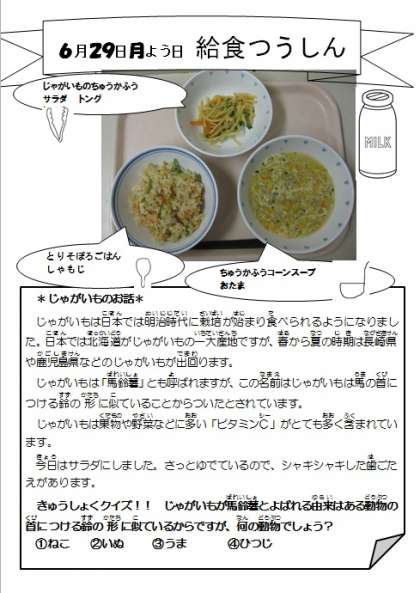 6月29日月よう日 給食つうしん
じゃがいものちゅうかふう
サラダ トング
MILK
とりそぼろごはん
しゃもじ
ちゅうかふうコーンスープ
おたま
＊じゃがいものお話＊
じゃがいもは日本では明治時代に栽培が始まり食べられるようになりまし
た。日本では北海道がじゃがいもの一大産地ですが、春から夏の時期は長崎県
や鹿児島県などのじゃがいもが出回ります。
じゃがいもは「馬鈴薯」とも呼ばれますが、この名前はじゃがいもは馬の首に
つける鈴の形に似ていることからついたとされています。
じゃがいもは果物や野菜などに多い「ビタミンC」がとても多く含まれてい
ます。
今日はサラダにしました。さっとゆでているので、シャキシャキした歯ご
たえがあります。
きゅうしょくクイズ！！ じゃがいもが馬鈴薯とよばれる由来はある動物の
首につける鈴の形に似ているからですが、何の動物でしょう？
①ねこ ②いぬ ③うま ④ひつじ